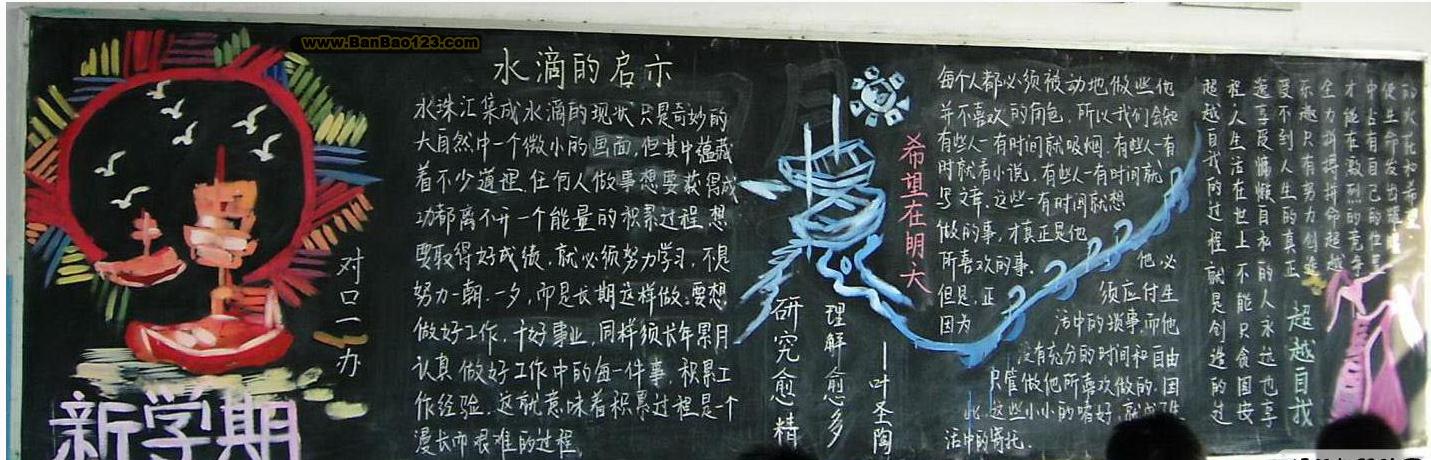 www.BanBao123.com
新学期
对口一办
水滴的启示
水珠汇集成水滴的现状只是奇妙的
大自然中一个微小的画面,但其中蕴藏
着不少道理.任何人做事想要获得成
功都离不开一个能量的积累过程.想
要取得好成绩.就必须努力学习,不是
努力一朝.一夕,而是长期这样做.要想
做好工作.干好事业,同样须长年累月
认真做好工作中的每一件事.积累工
作经验.这就意味着积累过程是一个
漫长而艰难的过程.
研究愈精
理解愈多
—叶圣陶
希望在明天
每个人都必须被动地做些他
并不喜欢的角色,所以我们会知
有些人一有时间就吸烟.有些人一有
时就看小说.有些人一有时间就
写文章.这些一有时间就想
做的事,才真正是他
所喜欢的事.
但是,正
因为
他必
须应付生
活中的琐事而他
没有充分的时间和自由
只管做他所喜欢做的.因
此.这些小小的嗜好,就成了生
活中的寄托.
超越自我
的火花和希望.
使生命发出
中占有自己的位
才能在激烈的竞争
全力拼搏拼命超越
乐趣只有努力创造
受不到人生的真正
造享受慵懒自私的人永远也享
程人生活在世上不能只贪图安
超越自我的过程就是创造的过